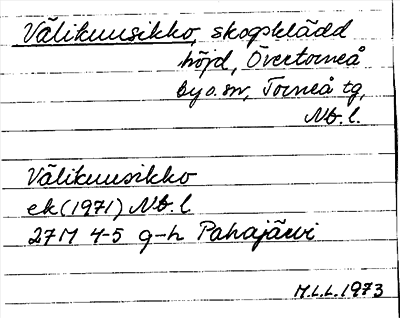 Välikuusikko, skogsklädd
höjd, Övertorneå
by o. sn, Torneå tg,
Nb. l.
Välikuusikko
ek (1971) Nb. l
27M 4-5 g-h Pahajärvi
M.L.L. 1973